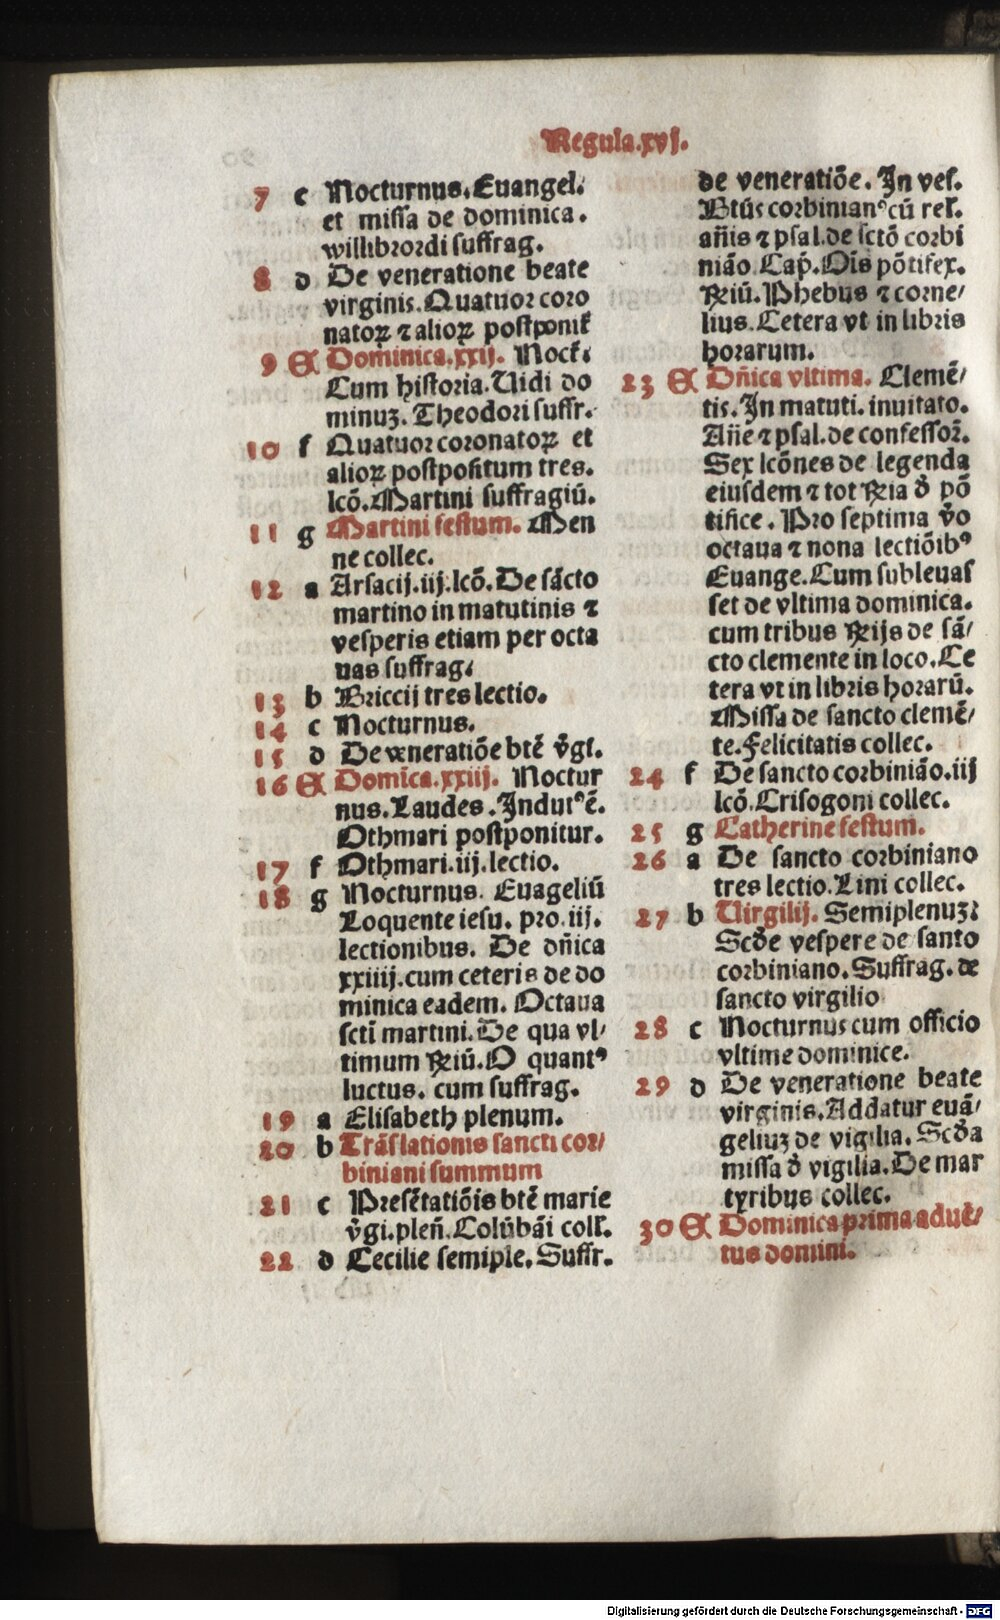 Regula.xvj.
7 c Nocturnus. Euangel.
et missa de dominica.
willibrordi suffrag.
8 d De veneratione beate
virginis. Quatuor coro
natoꝝ ⁊ alioꝝ postponit̃
9 A Dominica.xxij. Noct̃:
Cum historia. Uidi do
minuꝫ. Theodori suffr.
10 f Quatuor coronatoꝝ et
alioꝝ postpositum tres.
lcõ. Martini suffragiũ.
11 g Martini festum. Men
ne collec.
12 a Arsacij.iij.lcõ. De sãcto
martino in matutinis ⁊
vesperis etiam per octa
uas suffrag:
13 b Briccij tres lectio.
14 c Nocturnus.
15 d De veneratiõe btẽ ṽgĩ.
16 A Domĩca.xxiij. Noctur
nus. Laudes. Indutꝰ ẽ.
Othmari postponitur.
17 f Othmari.iij.lectio.
18 g Nocturnus. Euageliũ
Loquente iesu. pro.iij.
lectionibus. De dñica
xxiiij.cum ceteris de do
minica eadem. Octaua
sctĩ martini. De qua vl/
timum ꝶiũ. O quantꝰ
luctus. cum suffrag.
19 a Elisabeth plenum.
20 b Trãslationis sancti cor/
biniani summum
21 c Presẽtatiõis btẽ marie
ṽgi.pleñ. Colũbãi coll̃.
22 d Cecilie semiple. Suffr.
de veneratiõe. In ves.
Btũs corbinianꝰ cũ rel̃.
añis ⁊ psal.de sctõ corbi
nião Cap̃. Oĩs põtifex.
ꝶiũ. Phebus ⁊ corne/
lius. Cetera vt in libris
horarum.
23 A Dñica vltima. Clemẽ/
tis. In matuti. inuitato.
Añe ⁊ psal.de confessoꝝ.
Sex lcõnes de legenda
eiusdem ⁊ tot ꝶia đ põ
tifice. Pro septima ṽo
octaua ⁊ nona lectiõibꝰ
Euange. Cum subleuas
set de vltima dominica.
cum tribus ꝶijs de sã/
cto clemente in loco. Ce
tera vt in libris horarũ.
Missa de sancto clemẽ/
te. Felicitatis collec.
24 f De sancto corbinião.iij
lcõ. Crisogoni collec.
25 g Catherine festum.
26 a De sancto corbiniano
tres lectio. Lini collec.
27 b Uirgilij. Semiplenuꝫ:
Scđe vespere de santo
corbiniano. Suffrag. de
sancto virgilio
28 c Nocturnus cum officio
vltime dominice.
29 d De veneratione beate
virginis. Addatur euã/
geliuꝫ de vigilia. Scđa
missa đ vigilia. De mar
tyribus collec.
30 A Dominica prima aduẽ/
tus domini.
Digitalisierung gefördert durch die Deutsche Forschungsgemeinschaft - DFG